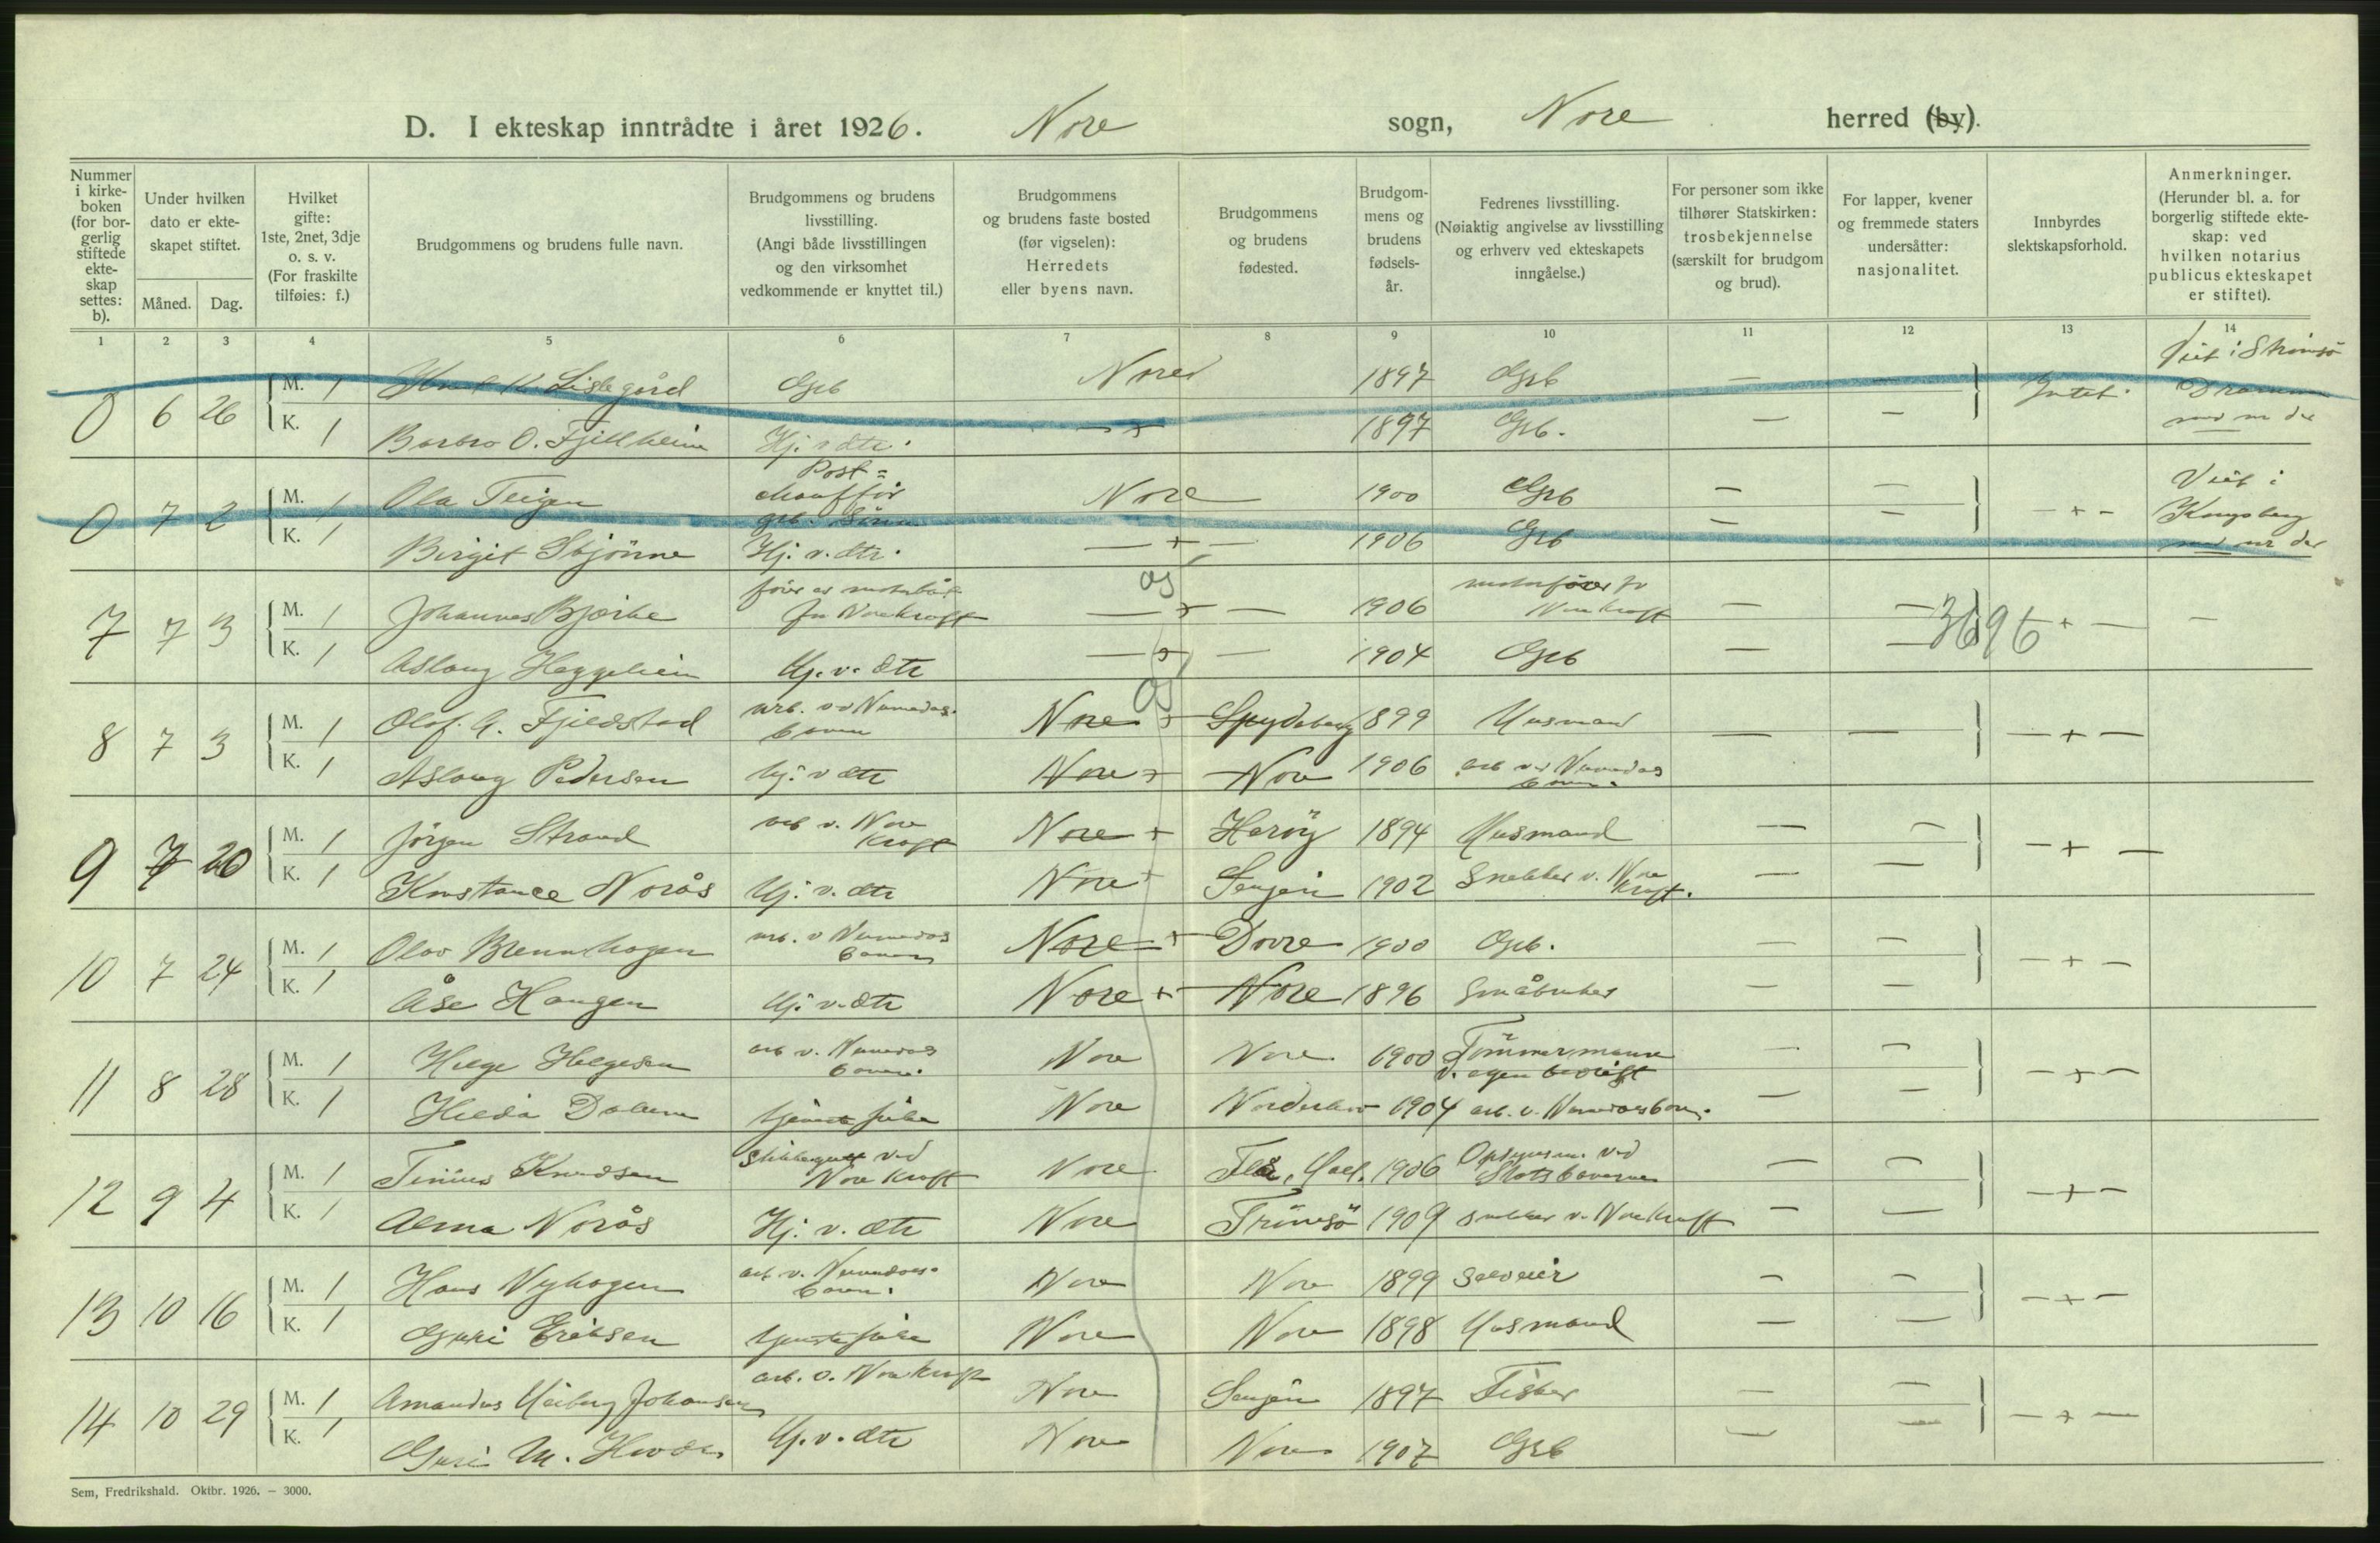 D. I ekteskap inntrådte i året 1926. Nore sogn, Nore herred (by).
Nummer i kirke-boken (for bor-gerlig stiftede ekte-skap settes: b).
Under hvilken dato er ekte-skapet stiftet.
Måned. Dag.
Hvilket gifte: 1ste, 2net, 3dje o. s. v. (For fraskilte tilføies: f.)
Brudgommens og brudens fulle navn.
Brudgommens og brudens livsstilling. (Angi både livsstillingen og den virksomhet vedkommende er knyttet til.)
Brudgommens og brudens faste bosted (før vigselen): Herredets eller byens navn.
Brudgommens og brudens fødested.
Brudgom-mens og brudens fødsels-år.
Fedrenes livsstilling. (Nøiaktig angivelse av livsstilling og erhverv ved ekteskapets inngåelse.)
For personer som ikke tilhører Statskirken: trosbekjennelse (særskilt for brudgom og brud).
For lapper, kvener og fremmede staters undersåtter: nasjonalitet.
Innbyrdes slektskapsforhold.
Anmerkninger. (Herunder bl. a. for borgerlig stiftede ekte-skap: ved hvilken notarius publicus ekteskapet er stiftet).
1 2 3 4 5 6 7 8 9 10 11 12 13 14
0 6 26 M. 1 Lislegård Grb Nore 1897 Grb — — Intet. Viet i Strömsö
K. 1 Barbro O. Fjellheim Hj. v. dtr. — + 1897 Grb. — —
0 7 2 M. 1 Ola Teigen Post-chauffør Nore 1900 Grb — — — + — Viet i Kongsberg
K. 1 Birgit Skjönne Hj. v. dtr. — + — 1906 Grb — —
7 7 3 M. 1 Johannes Bjerke fører av motorbåt for Nore kraft — + — 1906 motorfører for Nore kraft — — 3696 + — —
K. 1 Aslaug Heggelien Hj. v. dtr — + — 1904 Grb — —
8 7 3 M. 1 Olaf A. Fjeldstad arb. v. Numedals-banen Nore + Spydeberg 1899 Husmand — — — + —
K. 1 Aslaug Pedersen Hj. v dtr Nore + Nore 1906 arb ved Numedalsbanen
9 7 20 M. 1 Jörgen Strand arb v. Nore Kraft Nore + Heröy 1894 Husmand — — — + —
K. 1 Konstance Norås Hj. v. dtr Nore + Senjen 1902 Snekker v. Nore Kraft. — —
10 7 24 M. 1 Olav Brennhagen arb. v Numedalsbanen Nore + Dovre 1900 Grb. — — — + —
K. 1 Åse Haugen Hj. v. dtr Nore + Nore 1896 Småbruker — —
11 8 28 M. 1 Helge Helgesen arb v. Numedalsbanen. Nore Nore 1900 Tömmermann v. egen bedrift — — — + —
K. 1 Hilda Dalen tjenestepike Nore Norderhov 1904 arb. v. Numedalsban. — —
12 9 4 M. 1 Tinius Knudsen Stikkegutt ved Nore Kraft Nore Flå, Hall. 1906 Opsynsm. ved Statsbanerne — — — + —
K. 1 Alma Norås Hj. v. dtr Nore Trömsö 1909 snekker v. Nore Kraft — —
13 10 16 M. 1 Hans Nyhagen arb v. Numedals-banen. Nore Nore 1899 Selveier — — — + —
K. 1 Guri Eriksen tjenestepike Nore Nore 1898 Husmand — —
14 10 29 M. 1 Amandus Johansen arb. v. Nore Kraft Nore Senjen 1897 Fisker — — — + —
K. 1 Guri M. Hj. v. dtr Nore Nore 1907 Grb — —
Sem, Fredrikshald. Oktbr. 1926. — 3000.